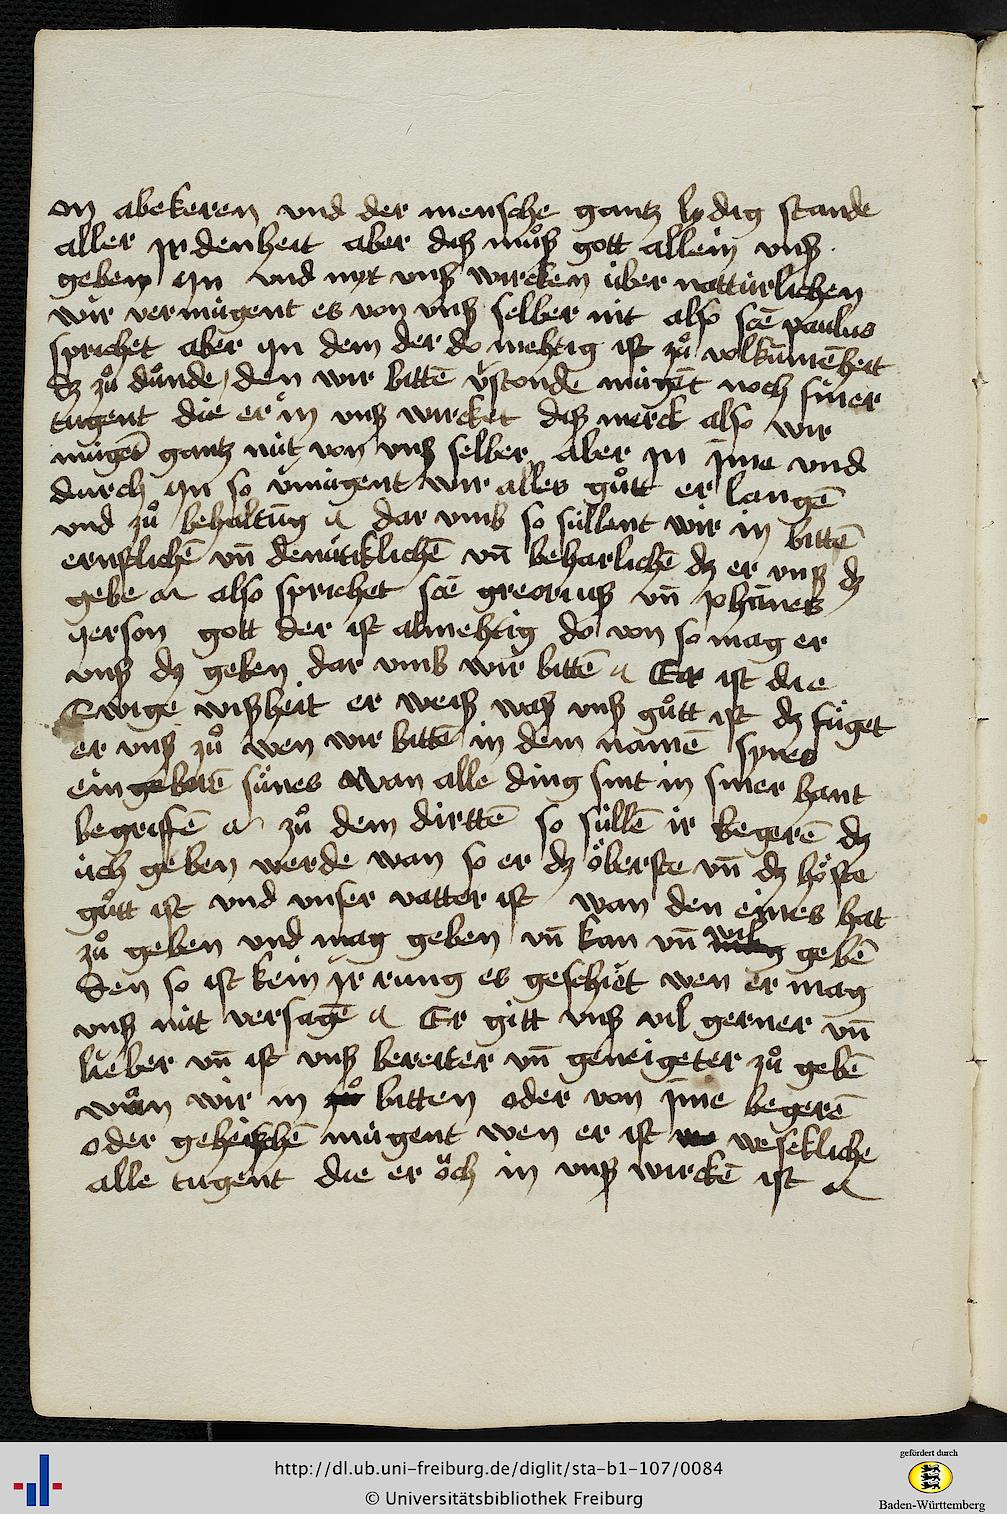 on abekeren vnd der mensche gantz lydig stande
aller jrdenheit aber daß muͦß gott allein vnß
geben jn vnd myt vnß wircken über nattürlichen
wir vermügent es von vnß selber nit also scē paulus
sprichet aber jn dem der do mehtig ist zuͦ volkūmēheit
dz zuͦ duͦnde den wir bittē v̄stonde mügēt noch siner
tugent die er in vnß wircket daß merck also wir
mügēt gantz nüt von vnß selber aber jn jme vnd
durch jn so v̄mügent wir alles guͦtt er langē
vnd zuͦ behaltūg dar vmb so süllent wir in bittē
ernstlichē vn̄ demütiklichē vn̄ beharlichē dz er vnß dz
gebe also sprichet scē greorius vn̄ johānes
gerson gott der ist almehtig do von so mag er
vnß dz geben dar vmb wir bittē Er ist die
Ewige wißheit er weiß waß vnß guͦtt ist dz füget
er vnß zuͦ wen wir bittē in dem namē synes
eingebornē sünes wan alle ding sint in siner hant
begriffē zuͦ dem dirttē so süllē ir begerē dz
üch geben werde wan so er dz öberste vn̄ dz höste
guͦtt ist vnd vnser vatter ist wan den eines hat
zuͦ geben vnd mag geben vn̄ kan vn̄ wil gebē
den so ist kein jrrung es geschiet wen er mag
vnß nüt versagē Er gitt vnß vil gerner vn̄
lieber vn̄ ist vnß bereiter vn̄ geneigeter zuͦ gebē
wan wir in bitten oder von jme begerē
oder geheischē mügent wen er ist wesekliche
alle tugent die er öch in vnß wirckē ist
http://dl.ub.uni-freiburg.de/diglit/sta-b1-107/0084
© Universitätsbibliothek Freiburg
gefördert durch
Baden-Württemberg